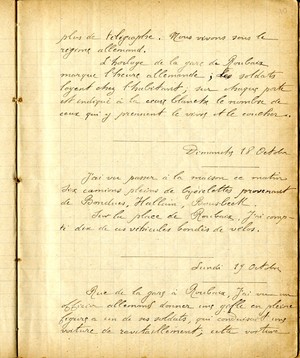 plus de télégraphe. Nous vivons sous le
régime allemand.
L'horloge de la gare de Roubaix
marque l'heure allemande; des soldats
logent chez l'habitant, sur chaque porte
est indiqué à la craie blanche le nombre de
ceux qui y prennent le vivre et le coucher.
Dimanche 18 Octobre
J'ai vu passer à la maison ce matin
dix camions pleins de bicyclettes provenant
de Bondues, Halluin, Bousbecke.
Sur la place de Roubaix, j'ai comp-
té dix de ces véhicules bondés de vélos.
Lundi 19 Octobre
Rue de la gare à Roubaix, j'ai vu un
officier allemand donner une gifle en pleine
figure à un de ses soldats, qui conduisait une
voiture de ravitaillement, cette voiture